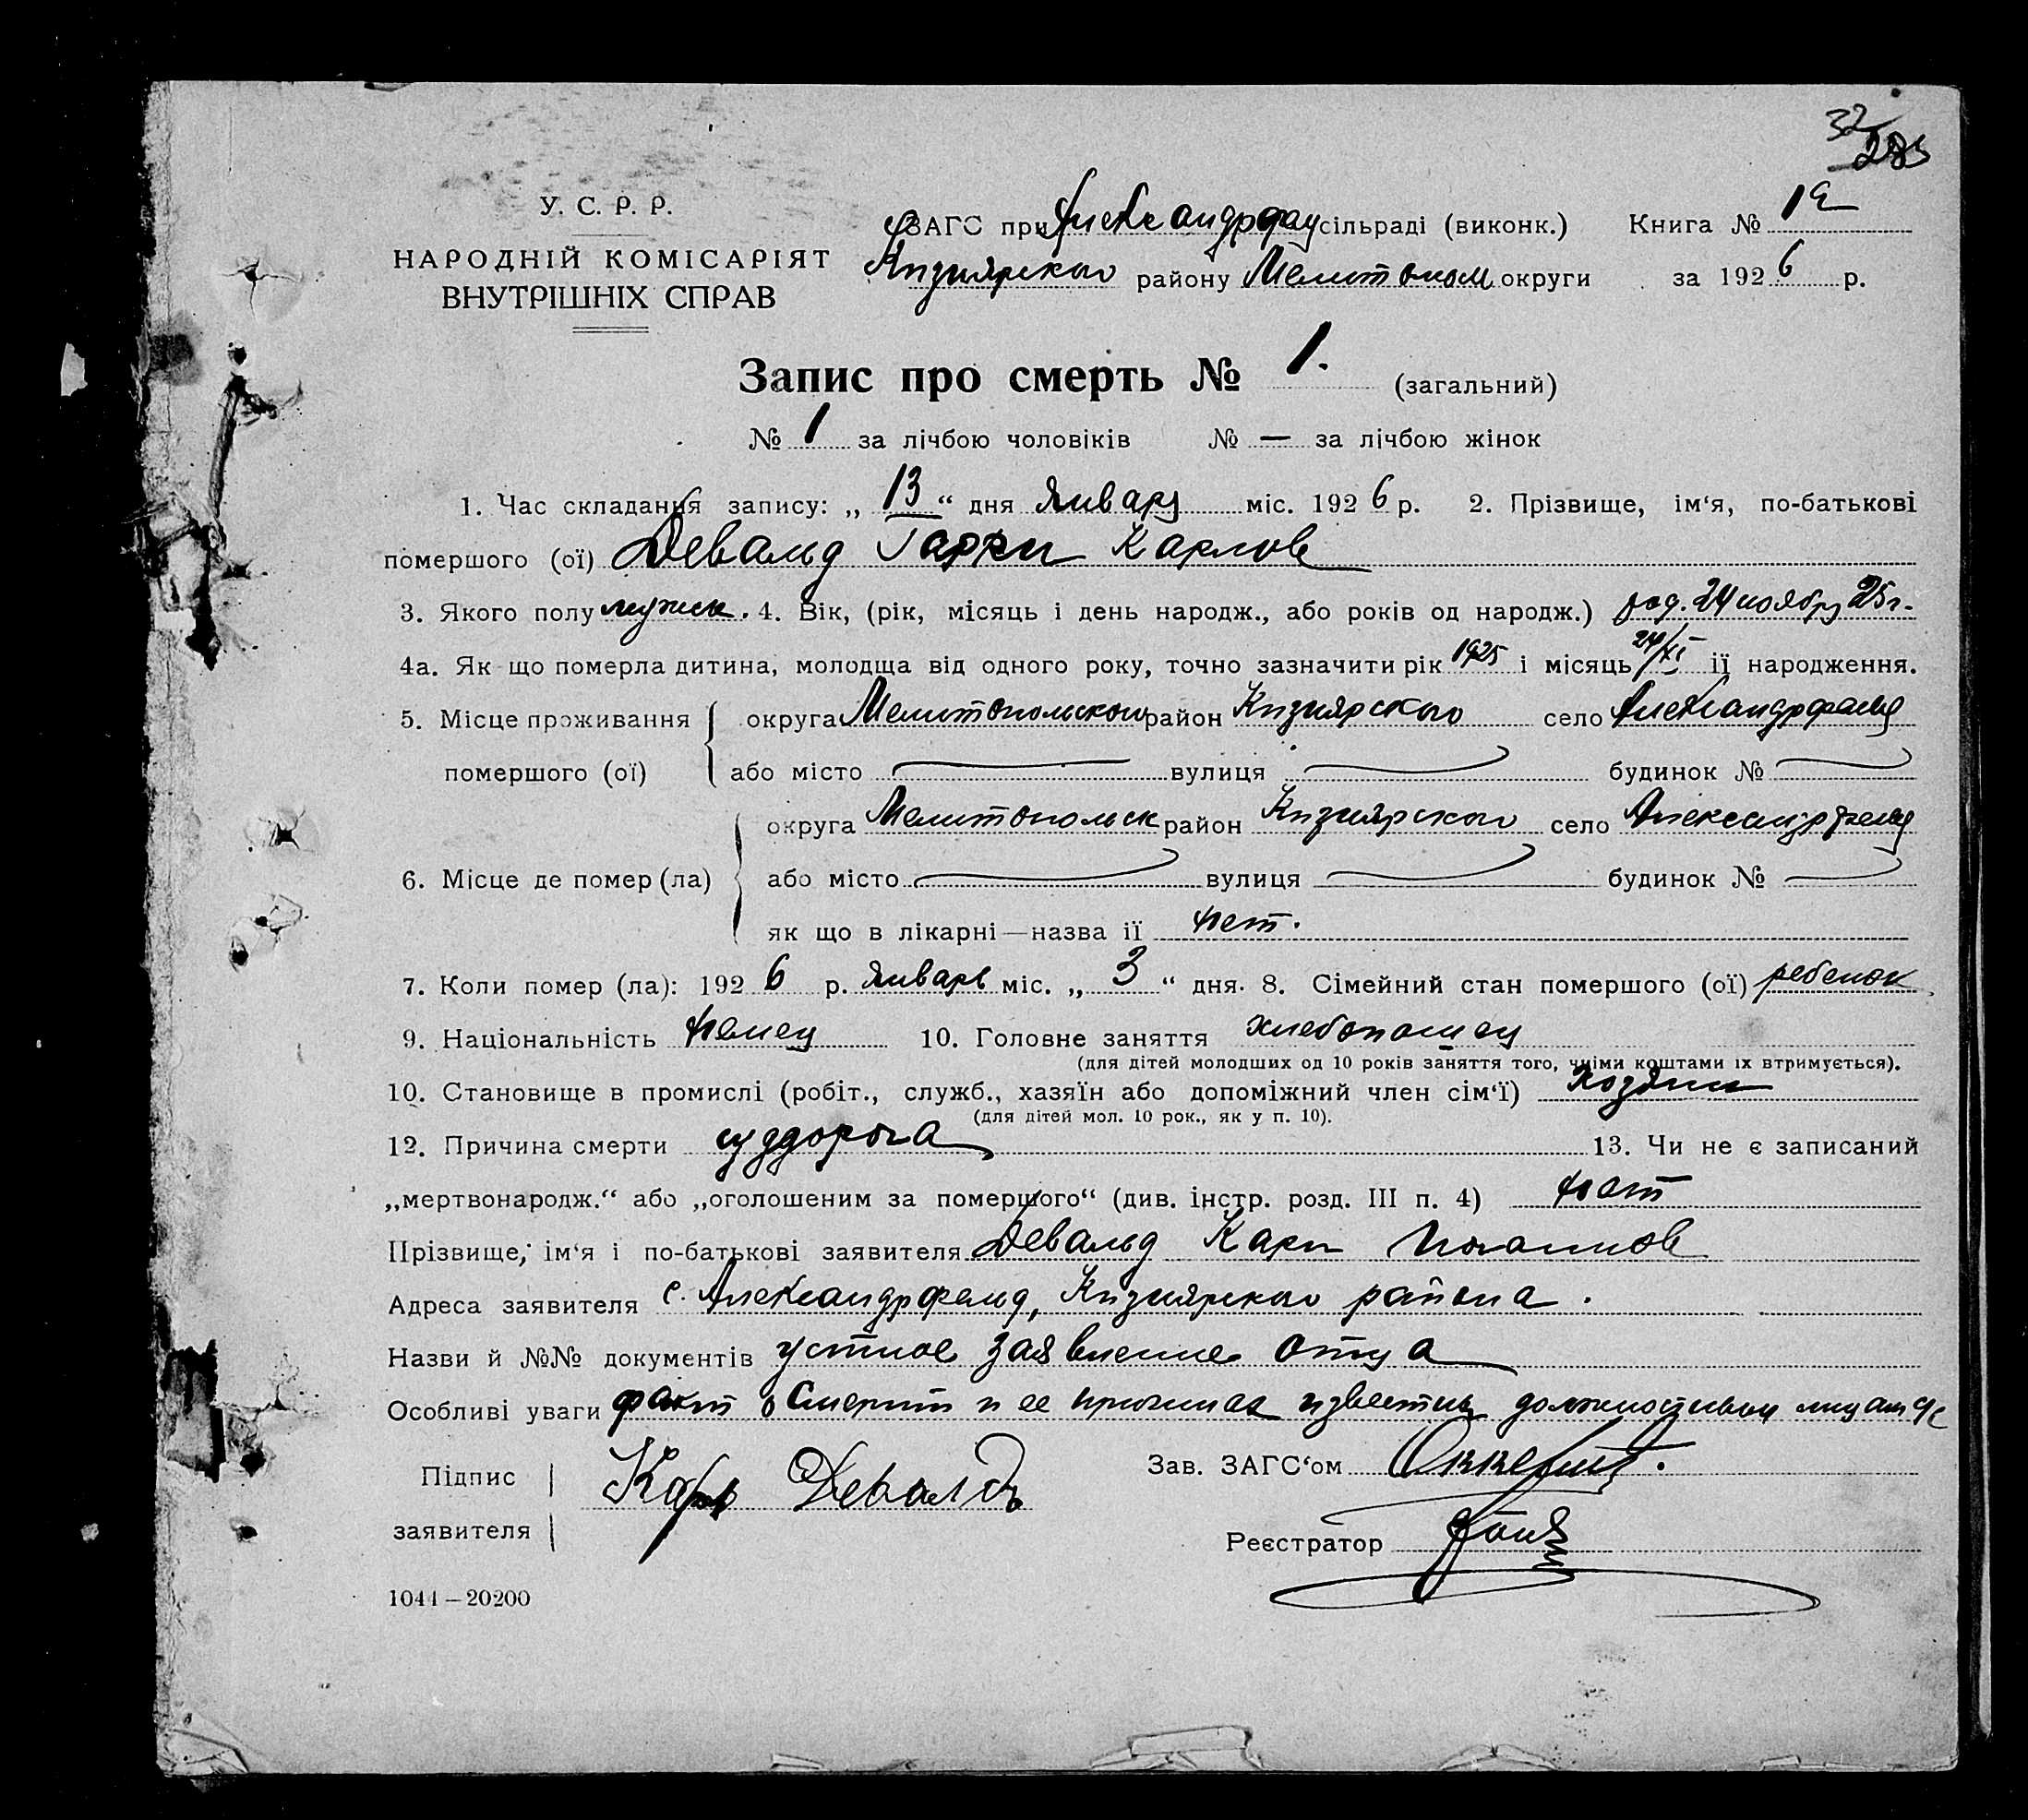 32
285
У. С. Р. Р.
НАРОДНІЙ КОМІСАРІЯТ
ВНУТРІШНІХ СПРАВ
ЗАГС при сільраді (виконк.) Книга №
району округи за 1926 р.
Запис про смерть № 1. (загальний)
№ 1 за лічбою чоловіків № — за лічбою жінок
1. Час складання запису: „13“ дня января міс. 1926 р. 2. Прізвище, ім‘я, по-батькові
помершого (ої) Девальд Гарри Карлов
3. Якого полу мужск. 4. Вік, (рік, місяць і день народж., або років од народж.) род. 24 ноября 25 г.
4а. Як що померла дитина, молодща від одного року, точно зазначити рік 1925 і місяць 24/XI її народження.
5. Місце проживання округа Мелитопольской район Кизиярского село Александрфельд
помершого (ої) або місто вулиця будинок №
округа Мелитопольск район Кизиярского село Александрфельд
6. Місце де помер (ла) або місто вулиця будинок №
як що в лікарні — назва її нет.
7. Коли помер (ла): 1926 р. январь міс. „3“ дня. 8. Сімейний стан помершого (ої) ребенок
9. Національність немец 10. Головне заняття хлебопашец
(для дітей молодших од 10 років заняття того, чиїми коштами їх втримується).
10. Становище в промислі (робіт., служб., хазяїн або допоміжний член сім‘ї) хозяин
(для дітей мол. 10 рок., як у п. 10).
12. Причина смерти суддорога 13. Чи не є записаний
„мертвонародж.“ або „оголошеним за помершого“ (див. інстр. розд. III п. 4) нет
Прізвище, ім‘я і по-батькові заявителя Девальд Карл Иоганнов
Адреса заявителя с. Александрфельд, Кизиярского района.
Назви й №№ документів устное заявление отца
Особливі уваги факт о смерти и ее причинах известны должностным лицам
Підпис Карл Девальдъ Зав. ЗАГС‘ом
заявителя Реєстратор
1044 — 20200